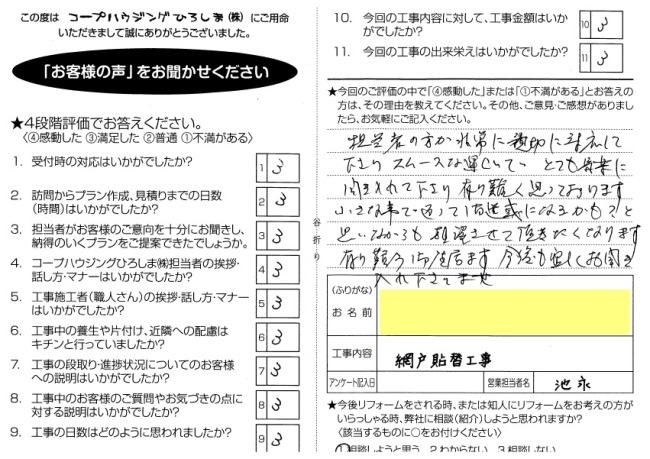 この度は コープハウジングひろしま(株) にご用命
いただきまして誠にありがとうございました。
「お客様の声」をお聞かせください
★4段階評価でお答えください。
〈④感動した ③満足した ②普通 ①不満がある〉
1. 受付時の対応はいかがでしたか?
1 3
2. 訪問からプラン作成、見積りまでの日数
(時間)はいかがでしたか?
2 3
3. 担当者がお客様のご意向を十分にお聞きし、
納得のいくプランをご提案できたでしょうか。
3 3
4. コープハウジングひろしま㈱担当者の挨拶・
話し方・マナーはいかがでしたか?
4 3
5. 工事施工者(職人さん)の挨拶・話し方・マナー
はいかがでしたか?
5 3
6. 工事中の養生や片付け、近隣への配慮は
キチンと行っていましたか?
6 3
7. 工事の段取り・進捗状況についてのお客様
への説明はいかがでしたか?
7 3
8. 工事中のお客様のご質問やお気づきの点に
対する説明はいかがでしたか?
8 3
9. 工事の日数はどのように思われましたか?
9 3
谷折り
10. 今回の工事内容に対して、工事金額はいか
がでしたか?
10 3
11. 今回の工事の出来栄えはいかがでしたか?
11 3
★今回のご評価の中で「④感動した」または「①不満がある」とお答えの
方は、その理由を教えてください。その他、ご意見・ご感想がありました
ら、お気軽にご記入ください。
担当者の方が非常に親切に対応して
下さり スムースな運びでい とても
聞き入れて下さり 有り難く思っております
小さな事で迷惑になるかも?と
思いながらも させて頂きたくなります
有り難う御座居ます 今後も宜しくお聞き
入れ下さいませ
(ふりがな)
お名前
工事内容 網戸貼替工事
アンケート記入日 営業担当者名 池永
★今後リフォームをされる時、または知人にリフォームをお考えの方が
いらっしゃる時、弊社に相談(紹介)しようと思われますか?
〈該当するものに○をお付けください〉
1.相談しようと思う 2.わからない 3.相談しない